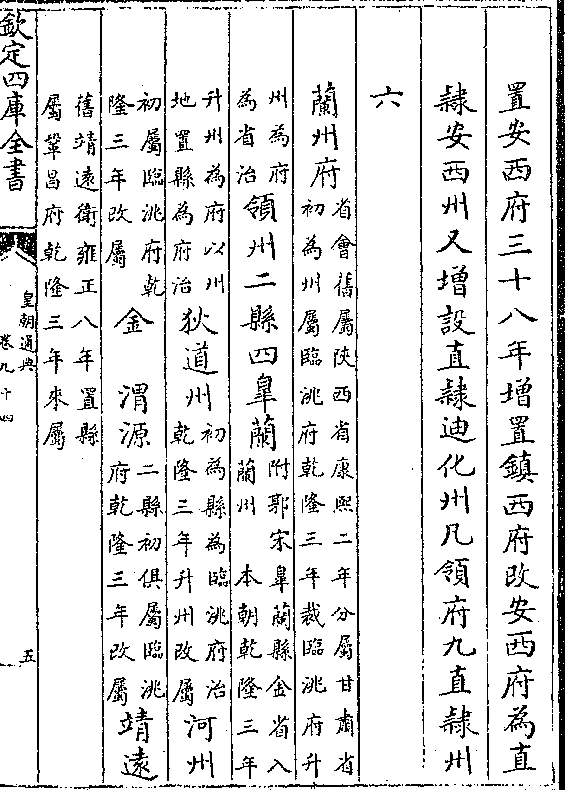 置安西府三十八年增置鎮西府改安西府為直
隸安西州又增設直隸迪化州凡領府九直隸州
六
蘭州府
省會舊屬陜西省康熙二年分屬甘肅省
初為州屬臨洮府乾隆三年裁臨洮府升
州為府
為省治
領州二縣四臯蘭
附郭宋臯蘭縣金省入
蘭州 本朝乾隆三年
升州為府以州
地置縣為府治
狄道州
初為縣為臨洮府治
乾隆三年升州改屬
河州
初屬臨洮府乾
隆三年改屬
金 渭源
二縣初俱屬臨洮
府乾隆三年改屬
靖遠
舊靖遠衛雍正八年置縣
屬鞏昌府乾隆三年來屬
欽定四庫全書
皇朝通典
卷九十四
五